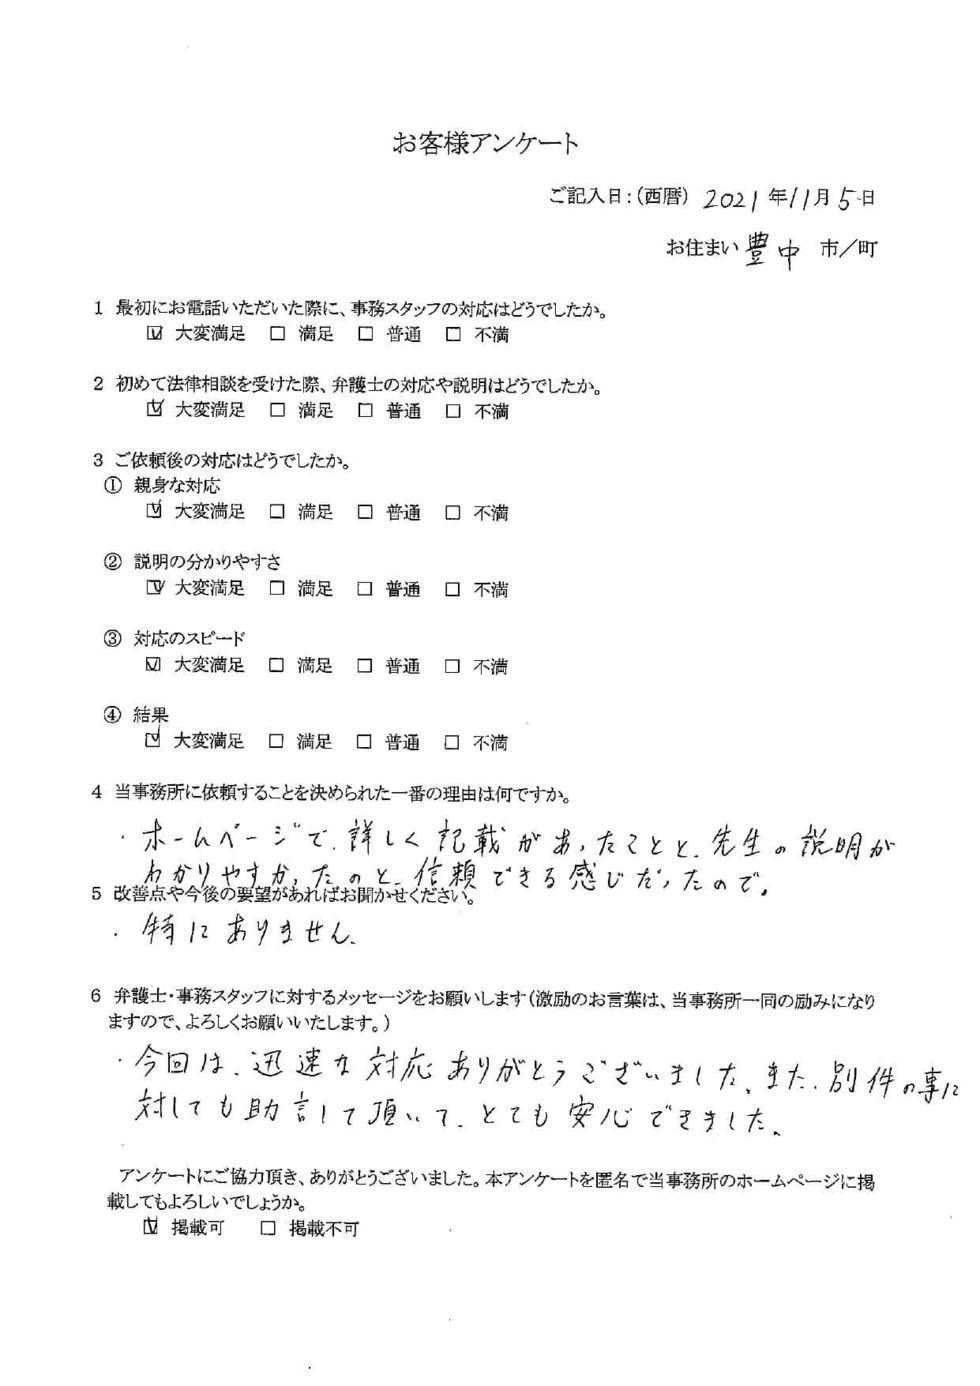 お客様アンケート
ご記入日：（西暦） 2021 年 11 月 5 日
お住まい 豊中 市／町
1 最初にお電話いただいた際に、事務スタッフの対応はどうでしたか。
☑ 大変満足 □ 満足 □ 普通 □ 不満
2 初めて法律相談を受けた際、弁護士の対応や説明はどうでしたか。
☑ 大変満足 □ 満足 □ 普通 □ 不満
3 ご依頼後の対応はどうでしたか。
① 親身な対応
☑ 大変満足 □ 満足 □ 普通 □ 不満
② 説明の分かりやすさ
☑ 大変満足 □ 満足 □ 普通 □ 不満
③ 対応のスピード
☑ 大変満足 □ 満足 □ 普通 □ 不満
④ 結果
☑ 大変満足 □ 満足 □ 普通 □ 不満
4 当事務所に依頼することを決められた一番の理由は何ですか。
・ホームページで、詳しく記載があったことと、先生の説明が
わかりやすかったのと、信頼できる感じだったので。
5 改善点や今後の要望があればお聞かせください。
・特にありません。
6 弁護士・事務スタッフに対するメッセージをお願いします（激励のお言葉は、当事務所一同の励みになり
ますので、よろしくお願いいたします。）
・今回は、迅速な対応ありがとうございました。また、別件の事に
対しても助言して頂いて、とても安心できました。
アンケートにご協力頂き、ありがとうございました。本アンケートを匿名で当事務所のホームページに掲
載してもよろしいでしょうか。
☑ 掲載可 □ 掲載不可